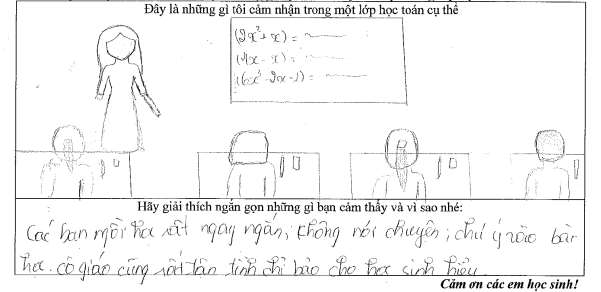 Đây là những gì tôi cảm nhận trong một lớp học toán cụ thể
(2x²+x) =
(4x - x) =
(6x³ - 2x - 1) =
Hãy giải thích ngắn gọn những gì bạn cảm thấy và vì sao nhé:
Các bạn ngồi học rất ngay ngắn, không nói chuyện, chú ý vào bài
học. cô giáo cũng rất tận tình chỉ bảo cho học sinh hiểu.
Cảm ơn các em học sinh!